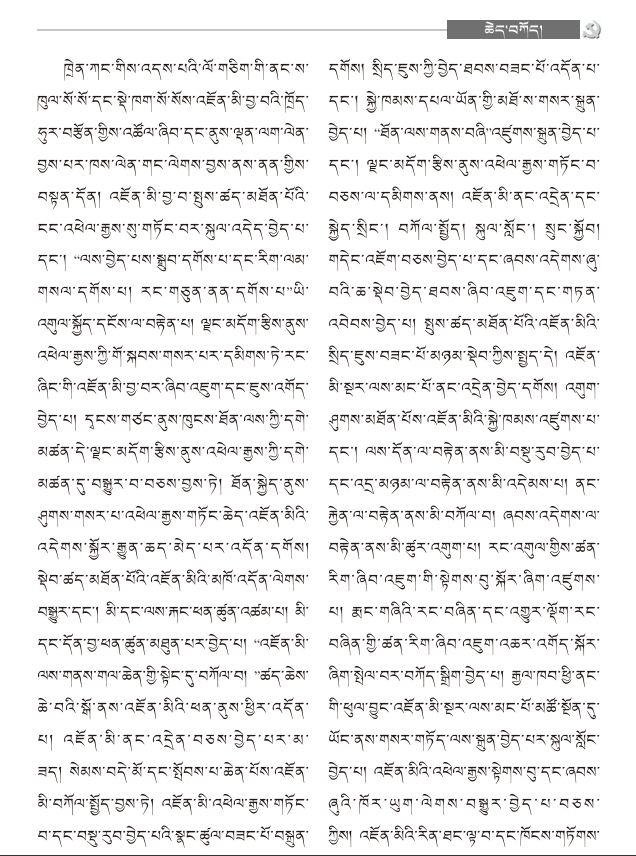 ཆེད་བཀོད།
ཁྲེན་ཀང་གིས་འདས་པའི་ལོ་གཅིག་གི་ནང་ས་
ཁུལ་སོ་སོ་དང་སྡེ་ཁག་སོ་སོས་འཛོན་མི་བྱ་བའི་ཁྲོད་
ཧུར་བརྩོན་གྱིས་འཚོལ་ཞིབ་དང་ནུས་ལྡན་ལག་ལེན་
བྱས་པར་ཁས་ལེན་གང་ལེགས་བྱས་ནས་ནན་གྱིས་
བསྟན་དོན། འཛོན་མི་བྱ་བ་སྤུས་ཚད་མཐོན་པོའི་
ངང་འཕེལ་རྒྱས་སུ་གཏོང་བར་སྐུལ་འདེད་བྱེད་པ་
དང་། “ལས་བྱེད་པས་སྒྲུབ་དགོས་པ་དང་རིག་ལམ་
གསལ་དགོས་པ། རང་གཅུན་ནན་དགོས་པ”ཡི་
འགུལ་སྐྱོད་དངོས་ལ་བརྟེན་པ། ལྗང་མདོག་རྩིས་ནུས་
འཕེལ་རྒྱས་ཀྱི་གོ་སྐབས་གསར་པར་དམིགས་ཏེ་རང་
ཞིང་གི་འཛོན་མི་བྱ་བར་ཞིབ་འཇུག་དང་ཇུས་འགོད་
བྱེད་པ། དྭངས་གཙང་ནུས་ཁུངས་ཐོན་ལས་ཀྱི་དགེ་
མཚན་དེ་ལྗང་མདོག་རྩིས་ནུས་འཕེལ་རྒྱས་ཀྱི་དགེ་
མཚན་དུ་བསྒྱུར་བ་བཅས་བྱས་ཏེ། ཐོན་སྐྱེད་ནུས་
ཤུགས་གསར་པ་འཕེལ་རྒྱས་གཏོང་ཆེད་འཛོན་མིའི་
འདེགས་སྐྱོར་རྒྱུན་ཆད་མེད་པར་འདོན་དགོས།
སྡེབ་ཚད་མཐོན་པོའི་འཛོན་མིའི་མཁོ་འདོན་ལེགས་
བསྒྱུར་དང་། མི་དང་ལས་རྐང་ཕན་ཚུན་འཚམ་པ། མི་
དང་དོན་བྱ་ཕན་ཚུན་མཐུན་པར་བྱེད་པ། “འཛོན་མི་
ལས་གནས་གལ་ཆེན་གྱི་སྟེང་དུ་བཀོལ་བ། “ཚད་ཆེས་
ཆེ་བའི་སྒོ་ནས་འཛོན་མིའི་ཕན་ནུས་ཕྱིར་འདོན་
པ། འཛོན་མི་ནང་འདྲེན་བཅས་བྱེད་པར་མ་
ཟད། སེམས་བདེ་མོ་དང་སྤོབས་པ་ཆེན་པོས་འཛོན་
མི་བཀོལ་སྤྱོད་བྱས་ཏེ། འཛོན་མི་འཕེལ་རྒྱས་གཏོང་
བ་དང་བསྡུ་རུབ་བྱེད་པའི་སྣང་ཚུལ་བཟང་པོ་བསྐྲུན་
དགོས། སྲིད་ཇུས་ཀྱི་བྱེད་ཐབས་བཟང་པོ་འདོན་པ་
དང་། སྐྱེ་ཁམས་དཔལ་ཡོན་གྱི་མཐོ་ས་གསར་སྐྲུན་
བྱེད་པ། “ཐོན་ལས་གནས་བཞི”འཛུགས་སྐྲུན་བྱེད་པ་
དང་། ལྗང་མདོག་རྩིས་ནུས་འཕེལ་རྒྱས་གཏོང་བ་
བཅས་ལ་དམིགས་ནས། འཛོན་མི་ནང་འདྲེན་དང་
སྐྱེད་སྲིང་། བཀོལ་སྤྱོད། སྐུལ་སློང་། སྲུང་སྐྱོབ།
གདེང་འཇོག་བཅས་བྱེད་པ་དང་ཞབས་འདེགས་ཞུ་
བའི་ཆ་སྡེབ་བྱེད་ཐབས་ཞིབ་འཇུག་དང་གཏན་
འབེབས་བྱེད་པ། སྤུས་ཚད་མཐོན་པོའི་འཛོན་མིའི་
སྲིད་ཇུས་བཟང་པོ་མཉམ་སྡེབ་ཀྱིས་སྤྱད་དེ། འཛོན་
མི་སྔར་ལས་མང་པོ་ནང་འདྲེན་བྱེད་དགོས། འགུག་
ཤུགས་མཐོན་པོས་འཛོན་མིའི་སྐྱེ་ཁམས་འཛུགས་པ་
དང་། ལས་དོན་ལ་བརྟེན་ནས་མི་བསྡུ་རུབ་བྱེད་པ་
དང་འདྲ་མཉམ་ལ་བརྟེན་ནས་མི་འདེམས་པ། ནང་
རྐྱེན་ལ་བརྟེན་ནས་མི་བཀོལ་བ། ཞབས་འདེགས་ལ་
བརྟེན་ནས་མི་ཚུར་འགུག་པ། རང་འགུལ་གྱིས་ཚན་
རིག་ཞིབ་འཇུག་གི་སྟེགས་བུ་སྐོར་ཞིག་འཛུགས་
པ། རྨང་གཞིའི་རང་བཞིན་དང་འགྱུར་ལྡོག་རང་
བཞིན་གྱི་ཚན་རིག་ཞིབ་འཇུག་འཆར་འགོད་སྐོར་
ཞིག་སྤེལ་བར་བཀོད་སྒྲིག་བྱེད་པ། རྒྱལ་ཁབ་ཕྱི་ནང་
གི་ཕུལ་བྱུང་འཛོན་མི་སྔར་ལས་མང་པོ་མཚོ་སྔོན་དུ་
ཡོང་ནས་གསར་གཏོད་ལས་སྐྲུན་བྱེད་པར་སྐུལ་སློང་
བྱེད་པ། འཛོན་མིའི་འཕེལ་རྒྱས་སྟེགས་བུ་དང་ཞབས་
ཞུའི་ཁོར་ཡུག་ལེགས་བསྒྱུར་བྱེད་པ་བཅས་
ཀྱིས། འཛོན་མིའི་རིན་ཐང་ལྟ་བ་དང་ཁོངས་གཏོགས་